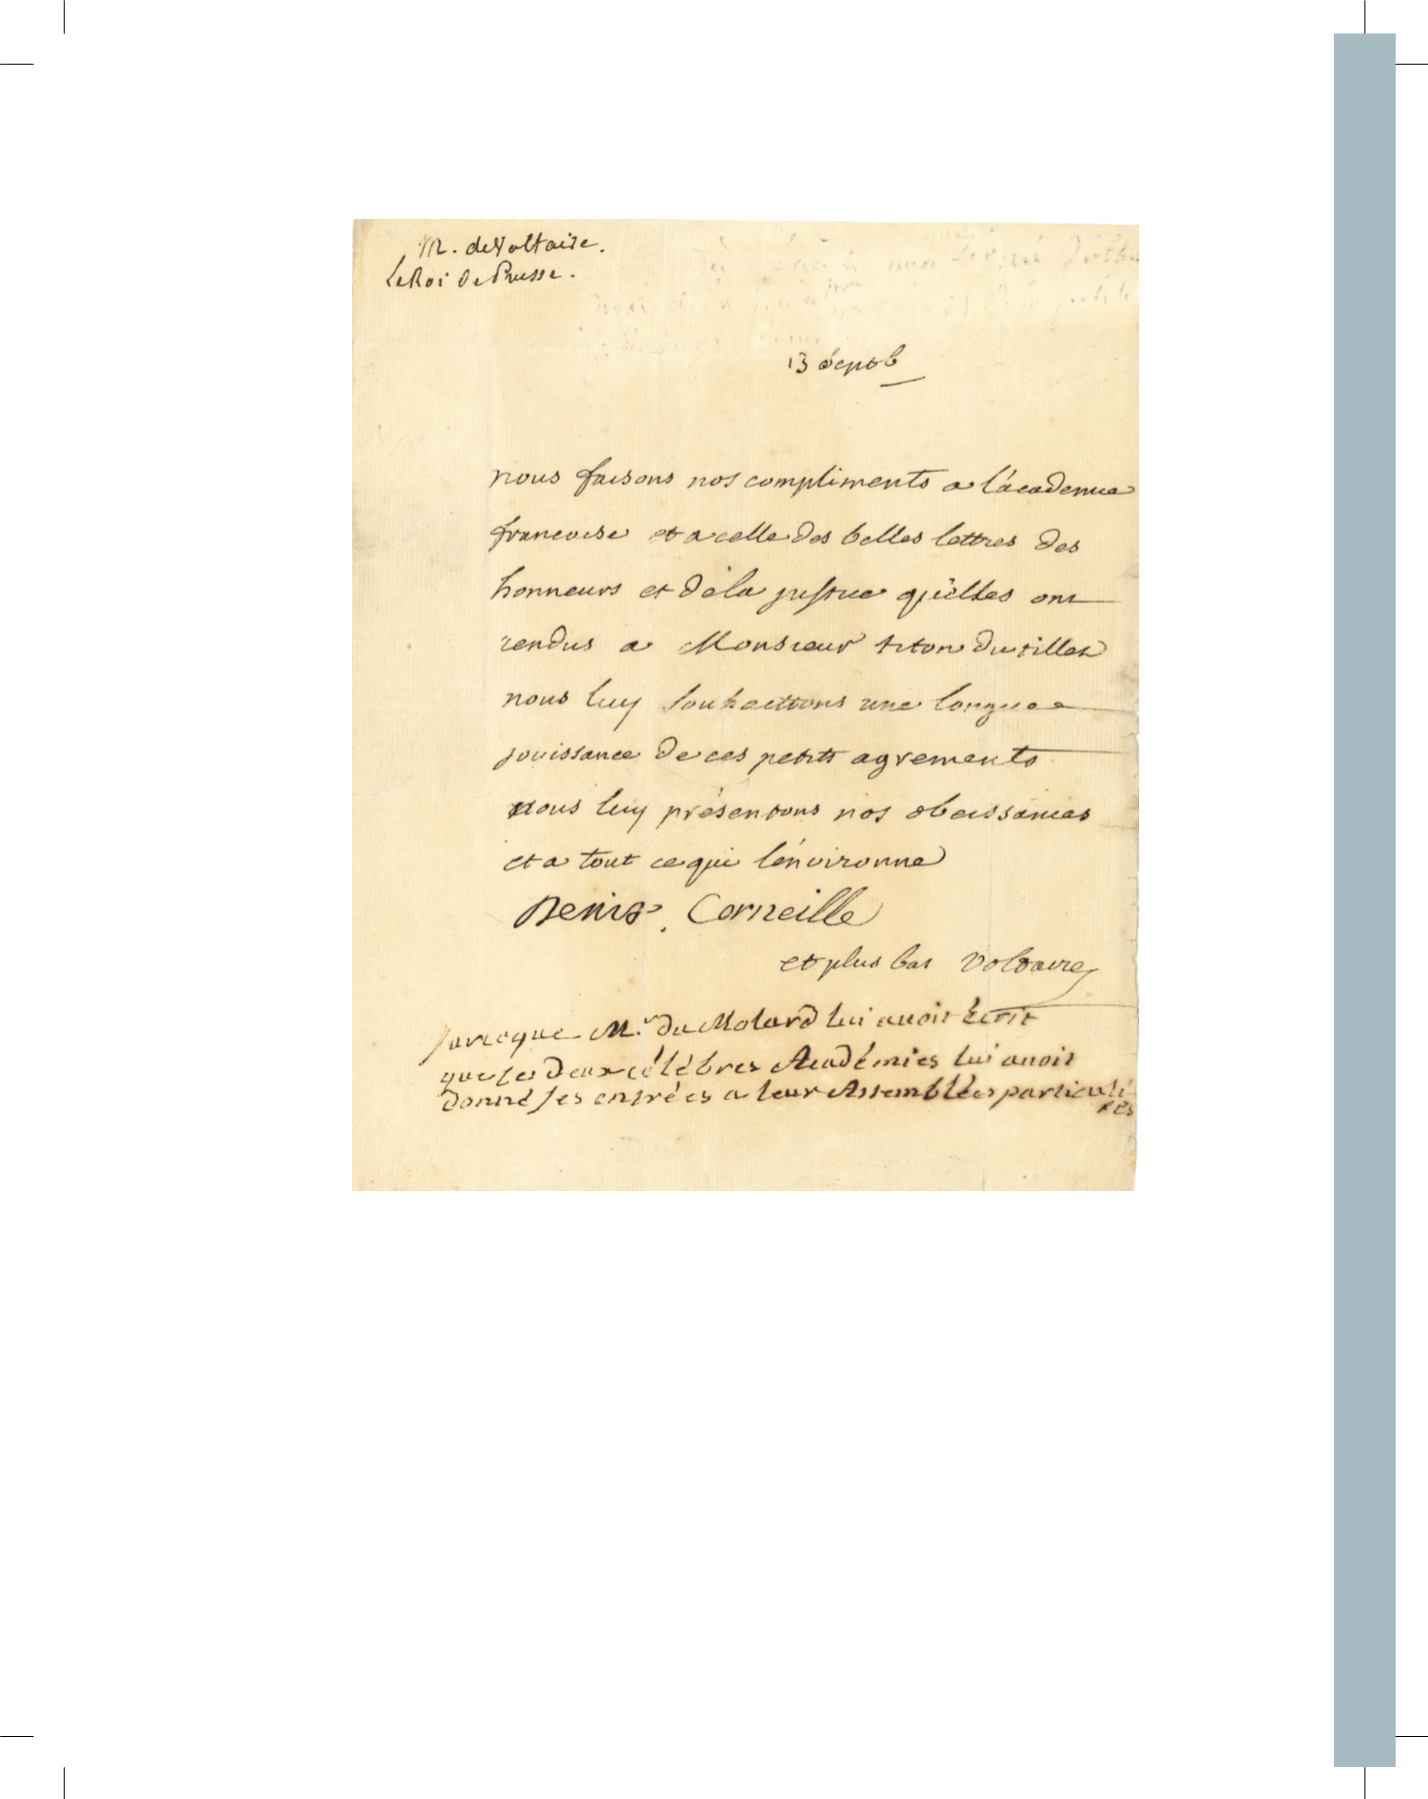 M. de Voltaire.
Le Roi de Prusse.
13
nous faisons nos compliments a l'academie
francoise et a celle des belles lettres des
honneurs et de la justice qu'elles ont
rendus a Monsieur titon du tillet
nous luy souhaittons une longue
jouissance de ces petits agrements
nous luy présentons nos obeissances
et a tout ce qui l'environne
Denis. Corneille
et plus bas Voltaire
sur ce que M.r du Molard lui avoit écrit
que ses deux célébres Académies lui avoit
donné ses entrées a leur Assemblées particuli
res